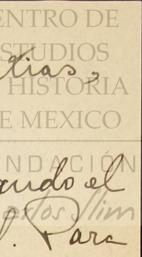 ENTRO DE
ESTUDIOS
tias,
HISTORIA
E MEXICO
FUNDACIÓN
ando el
Carlos Slim
Para